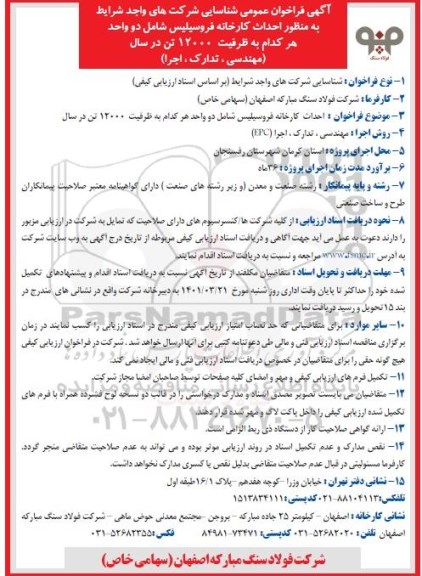 آگهی فراخوان عمومی شناسایی شرکت های واجد شرایط
به منظور احداث کارخانه فروسیلیس شامل دو واحد
هر کدام به ظرفیت ۱۲۰۰۰ تن در سال
(مهندسی ، تدارک ، اجرا)
فولاد سنگ
۱- نوع فراخوان : شناسایی شرکت های واجد شرایط (بر اساس اسناد ارزیابی کیفی)
۲- کارفرما : شرکت فولاد سنگ مبارکه اصفهان (سهامی خاص)
۳- موضوع فراخوان : احداث کارخانه فروسیلیس شامل دو واحد هر کدام به ظرفیت ۱۲۰۰۰ تن در سال
۴- روش اجرا : مهندسی ، تدارک ، اجرا (EPC)
۵- محل اجرای پروژه : استان کرمان شهرستان رفسنجان
۶- برآورد مدت زمان اجرای پروژه : ۳۶ماه
۷- رشته و پایه پیمانکار : رشته صنعت و معدن (و زیر رشته های صنعت ) دارای گواهینامه معتبر صلاحیت پیمانکاران
طرح و ساخت صنعتی
۸- نحوه دریافت اسناد ارزیابی : از کلیه شرکت ها/کنسرسیوم های دارای صلاحیت که تمایل به شرکت در ارزیابی مزبور
را دارند دعوت به عمل می آید جهت آگاهی و دریافت اسناد ارزیابی کیفی مربوطه از تاریخ درج آگهی به وب سایت شرکت
به آدرس مراجعه و نسبت به دریافت اسناد اقدام نمایند.
۹- مهلت دریافت و تحویل اسناد : متقاضیان مکلفند از تاریخ آگهی نسبت به دریافت اسناد اقدام و پیشنهادهای تکمیل
شده خود را حداکثر تا پایان وقت اداری روز شنبه مورخ ۱۴۰۱/۰۳/۲۱ به دبیرخانه شرکت واقع در نشانی های مندرج در
بند ۱۵ تحویل و رسید دریافت نمایند.
۱۰- سایر موارد : برای متقاضیانی که حد نصاب امتیاز ارزیابی کیفی مندرج در اسناد ارزیابی را کسب نمایند در زمان
برگزاری مناقصه اسناد ارزیابی فنی و مالی طی دعوتنامه کتبی برای آنها ارسال خواهد شد . شرکت در فراخوان ارزیابی کیفی
هیچ گونه حقی را برای متقاضیان در خصوص دریافت اسناد ارزیابی فنی و مالی ایجاد نمی کند.
۱۱- تکمیل فرم های ارزیابی کیفی و مهر و امضای کلیه صفحات توسط صاحبان امضا مجاز شرکت.
۱۲- متقاضیان می بایست تصویر مصدق اسناد و مدارک درخواستی را در قالب دو نسخه لوح فشرده همراه با فرم های
تکمیل شده ارزیابی کیفی را داخل پاکت لاک و مهر شده قرار دهند.
۱۳- ارائه گواهی صلاحیت کار از دستگاه ذی ربط الزامی است.
۱۴- نقص مدارک و عدم تکمیل اسناد در روند ارزیابی موثر بوده و می تواند به عدم صلاحیت متقاضی منجر گردد.
کارفرما مسئولیتی در قبال عدم صلاحیت متقاضی بدلیل نقص یا کسری مدارک نخواهد داشت.
۱۵- نشانی دفتر تهران : خیابان وزرا -کوچه هفدهم -پلاک ۱۶/۱طبقه اول
تلفکس:۸۸۱۰۴۱۱۳-۰۲۱ کدپستی:۱۵۱۳۸۳۴۱۱۱
نشانی کارخانه : اصفهان - کیلومتر ۲۵ جاده مبارکه - بروجن -مجتمع معدنی حوض ماهی - شرکت فولاد سنگ مبارکه
اصفهان تلفن : ۵۲۶۸۲۰۲۰-۰۳۱ کدپستی : ۷۳۴۷۱-۸۴۹۸۱ فکس:۵۲۶۸۲۳۵۵-۰۳۱
شرکت فولاد سنگ مبارکه اصفهان (سهامی خاص)